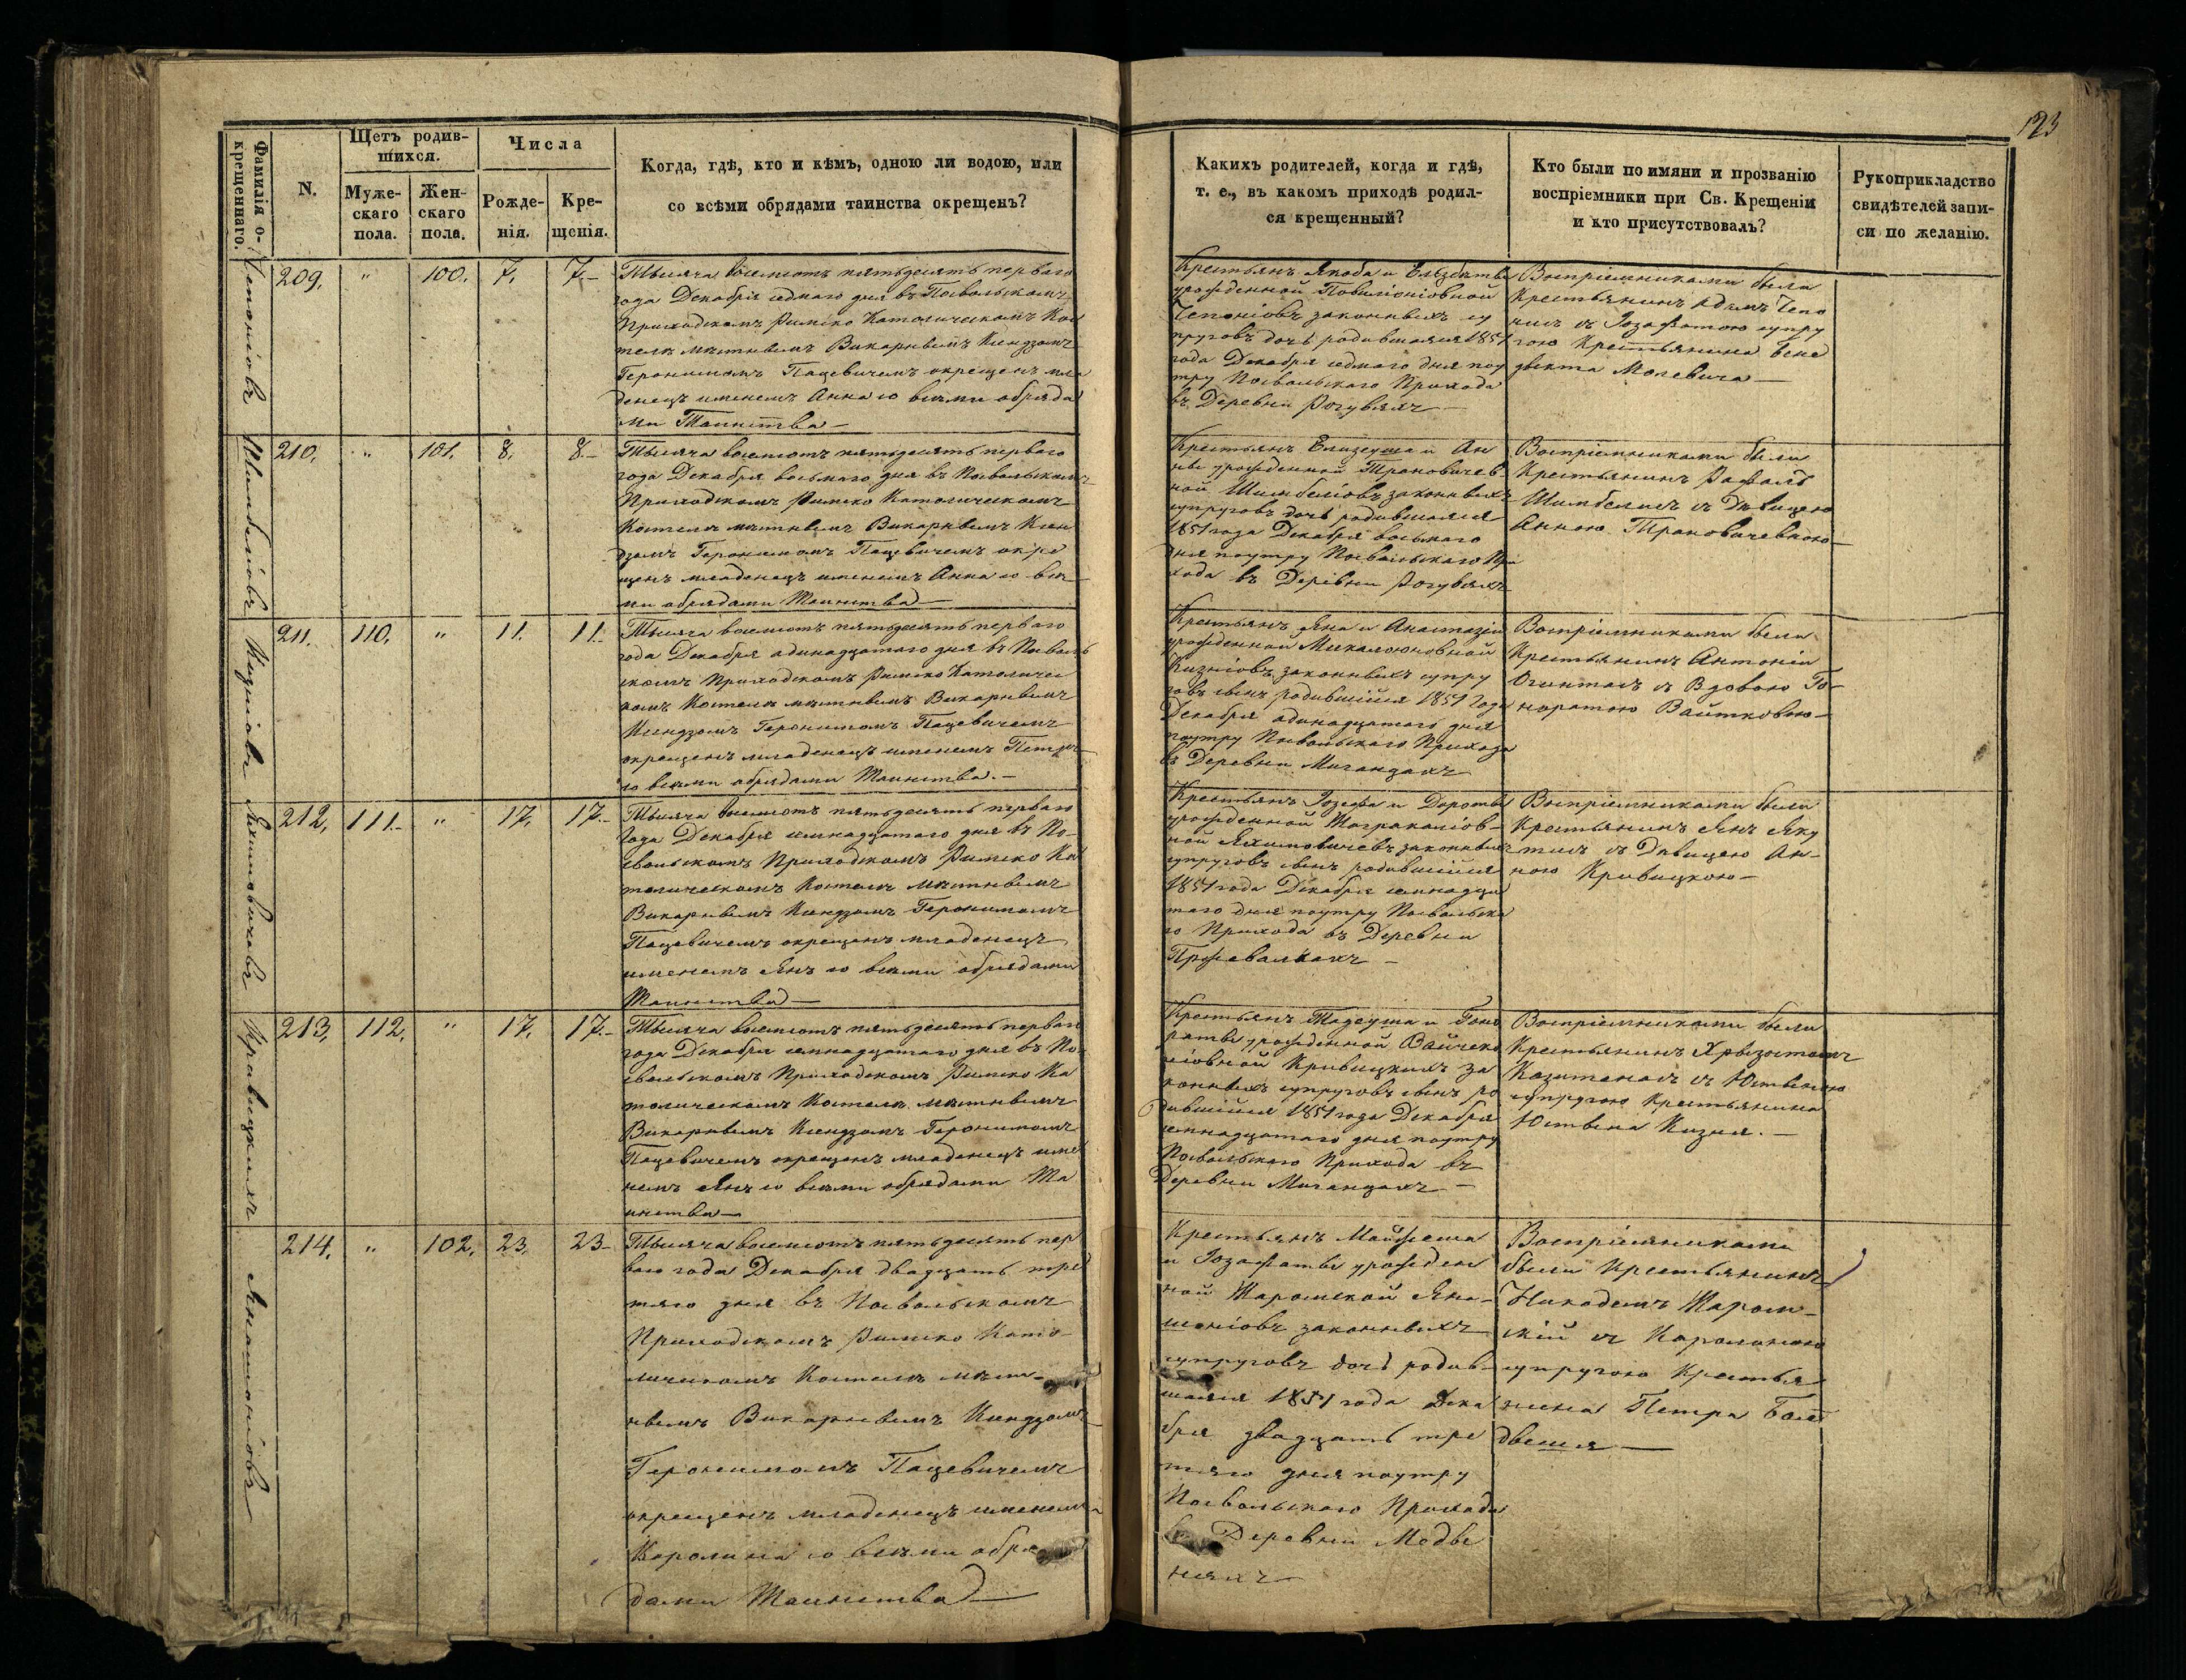 123
Фамилія о-
крещеннаго.
N.
Щетъ родив-
шихся.
Муже-
скаго
пола.
Жен-
скаго
пола.
Числа
Рожде-
нія.
Кре-
щенія.
Когда, гдѣ, кто и кѣмъ, одною ли водою, или
со всѣми обрядами таинства окрещенъ?
Какихъ родителей, когда и гдѣ,
т. е., въ какомъ приходѣ родил-
ся крещенный?
Кто были по имяни и прозванію
воспріемники при Св. Крещеніи
и кто присутствовалъ?
Рукоприкладство
свидѣтелей запи-
си по желанію.
Чепоніовъ
209.
"
100.
7.
7.-
Тысяча восемсотъ пятьдесятъ перваго
года Декабря седмаго дня въ Посвольскомъ
Приходскомъ Римско Католическомъ Кос
телѣ мѣстнымъ Викарнымъ Ксендзомъ
Геронимомъ Пацевичемъ окрещенъ мла
денецъ именемъ Анна со всѣми обряда
ми Таинства —
Крестьянъ Якоба и Елзбѣты
урожденной Повиліоніовной
Чепоніовъ законныхъ су
пруговъ дочь родившаяся 1851
года Декабря седмаго дня поу
тру Посвольскаго Прихода
въ Деревни Рогувляхъ —
Воспріемниками были
Крестьянинъ Адамъ Чепо
нисъ съ Іозафатою супру
гою Крестьянина Бене
дыкта Молевича —
Шимбеліовъ
210.
"
101.
8.
8.-
Тысяча восемсотъ пятьдесятъ перваго
года Декабря восьмаго дня въ Посвольскомъ
Приходскомъ Римско Католическомъ
Костелѣ мѣстнымъ Викарнымъ Ксен
дзомъ Геронимомъ Пацевичемъ окре
щенъ младенецъ именемъ Анна со всѣ
ми обрядами Таинства —
Крестьянъ Елизеуша и Ан
ны урожденной Трановичев
ной Шимбеліовъ законныхъ
супруговъ дочь родившаяся
1851 года Декабря восьмаго
дня поутру Посвольскаго При
хода въ Деревни Рогувляхъ
Воспріемниками были
Крестьянинъ Рафалъ
Шимбелисъ съ Дѣвицею
Анною Трановичевною —
Кизніовъ
211.
110.
"
11.
11.-
Тысяча восемсотъ пятьдесятъ перваго
года Декабря адинадцатаго дня въ Посволь
скомъ Приходскомъ Римско Католичес
комъ Костелѣ мѣстнымъ Викарнымъ
Ксендзомъ Геронимомъ Пацевичемъ
окрещенъ младенецъ именемъ Петръ
со всѣми обрядами Таинства. —
Крестьянъ Яна и Анастазіи
урожденной Михалоюновной
Кизніовъ законныхъ супру
говъ сынъ родившійся 1851 года
Декабря адинадцатаго дня
поутру Посвольскаго Прихода
въ Деревни Миганцахъ
Воспріемниками были
Крестьянинъ Антоній
Огинтасъ съ Вдовою Го-
норатою Войтковою —
Яхимовичевъ
212.
111.-
"
17.
17.-
Тысяча восемсотъ пятьдесятъ перваго
года Декабря семнадцатаго дня въ По-
свольскомъ Приходскомъ Римско Ка
толическомъ Костелѣ мѣстнымъ
Викарнымъ Ксендзомъ Геронимомъ
Пацевичемъ окрещенъ младенецъ
именемъ Янъ со всѣми обрядами
Таинства —
Крестьянъ Іозефа и Дороты
урожденной Шагракаліов-
ной Яхимовичевъ законныхъ
супруговъ сынъ родившійся
1851 года Декабря семнадца
таго дня поутру Посвольска
го Прихода въ Деревни
Воспріемниками были
Крестьянинъ Янъ Яку
тисъ съ Дѣвицею Ан-
ною Кривицкою —
Кривицкихъ
213.
112.
"
17.
17.-
Тысяча восемсотъ пятьдесятъ перваго
года Декабря семнадцатаго дня въ По-
свольскомъ Приходскомъ Римско Ка
толическомъ Костелѣ мѣстнымъ
Викарнымъ Ксендзомъ Геронимомъ
Пацевичемъ окрещенъ младенецъ име
немъ Янъ со всѣми обрядами Та
инства —
Крестьянъ Тадеуша и Гоно
раты урожденной Войчеко
ніовной Кривицкихъ за
конныхъ супруговъ сынъ ро
дившійся 1851 года Декабря
семнадцатаго дня поутру
Посвольскаго Прихода въ
Деревни Миганцахъ —
Воспріемниками были
Крестьянинъ Хрызостомъ
Казитенасъ съ Юстыною
супругою Крестьянина
Юстына Кизня. —
Яношоніовъ
214.
"
102.
23.
23-
Тысяча восемсотъ пятьдесятъ пер
ваго года Декабря двадцать тре
тяго дня въ Посвольскомъ
Приходскомъ Римско Като-
лическомъ Костелѣ мѣст-
нымъ Викарнымъ Ксендзомъ
Геронимомъ Пацевичемъ
окрещенъ младенецъ именемъ
Каролина со всѣми обря
дами Таинства —
Крестьянъ Мойжеша
и Іозафаты урожден
ной Жаромской Яно-
шоніовъ законныхъ
супруговъ дочь родив-
шаяся 1851 года Дека
бря двадцать тре
тяго дня поутру
Посвольскаго Прихода
въ Деревни Медвы
няхъ —
Воспріемниками
были Крестьянинъ
Никодемъ Жаром-
скій съ Каролиною
супругою Крестья
нина Петра Бал
двыша —